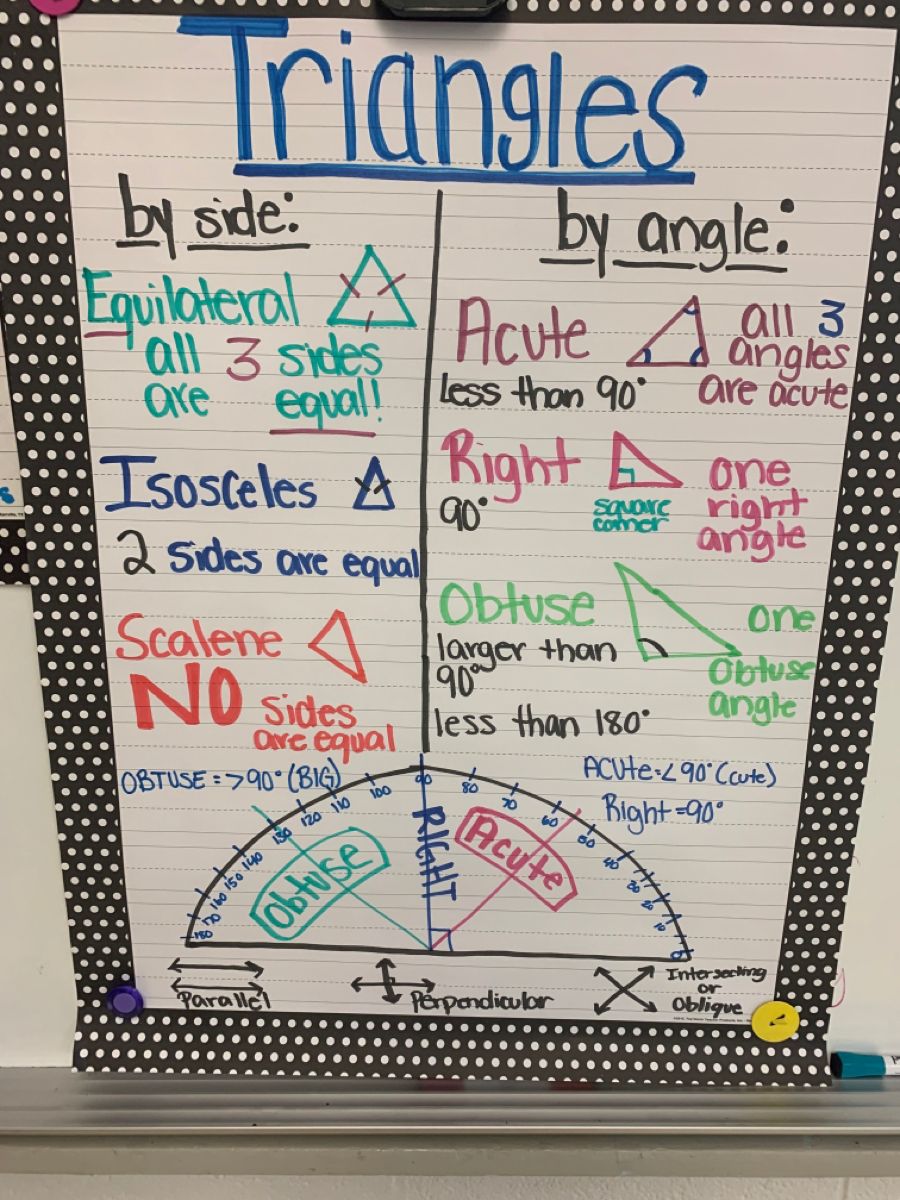 Triangles
by side:
Equilateral
all 3 sides
are equal!
Isosceles
2 sides are equal
Scalene
NO sides
are equal
by angle:
Acute
less than 90°
all 3
angles
are acute
Right
90°
square
corner
one
right
angle
Obtuse
larger than
90°
less than 180°
one
Obtuse
angle
OBTUSE = >90° (BIG)
ACUTE = <90° (cute)
Right = 90°
180 170 160 150 140 130 120 110 100 90 80 70 60 50 40 30 20 10 0
Obtuse
RIGHT
Acute
Parallel
Perpendicular
Intersecting
or
Oblique